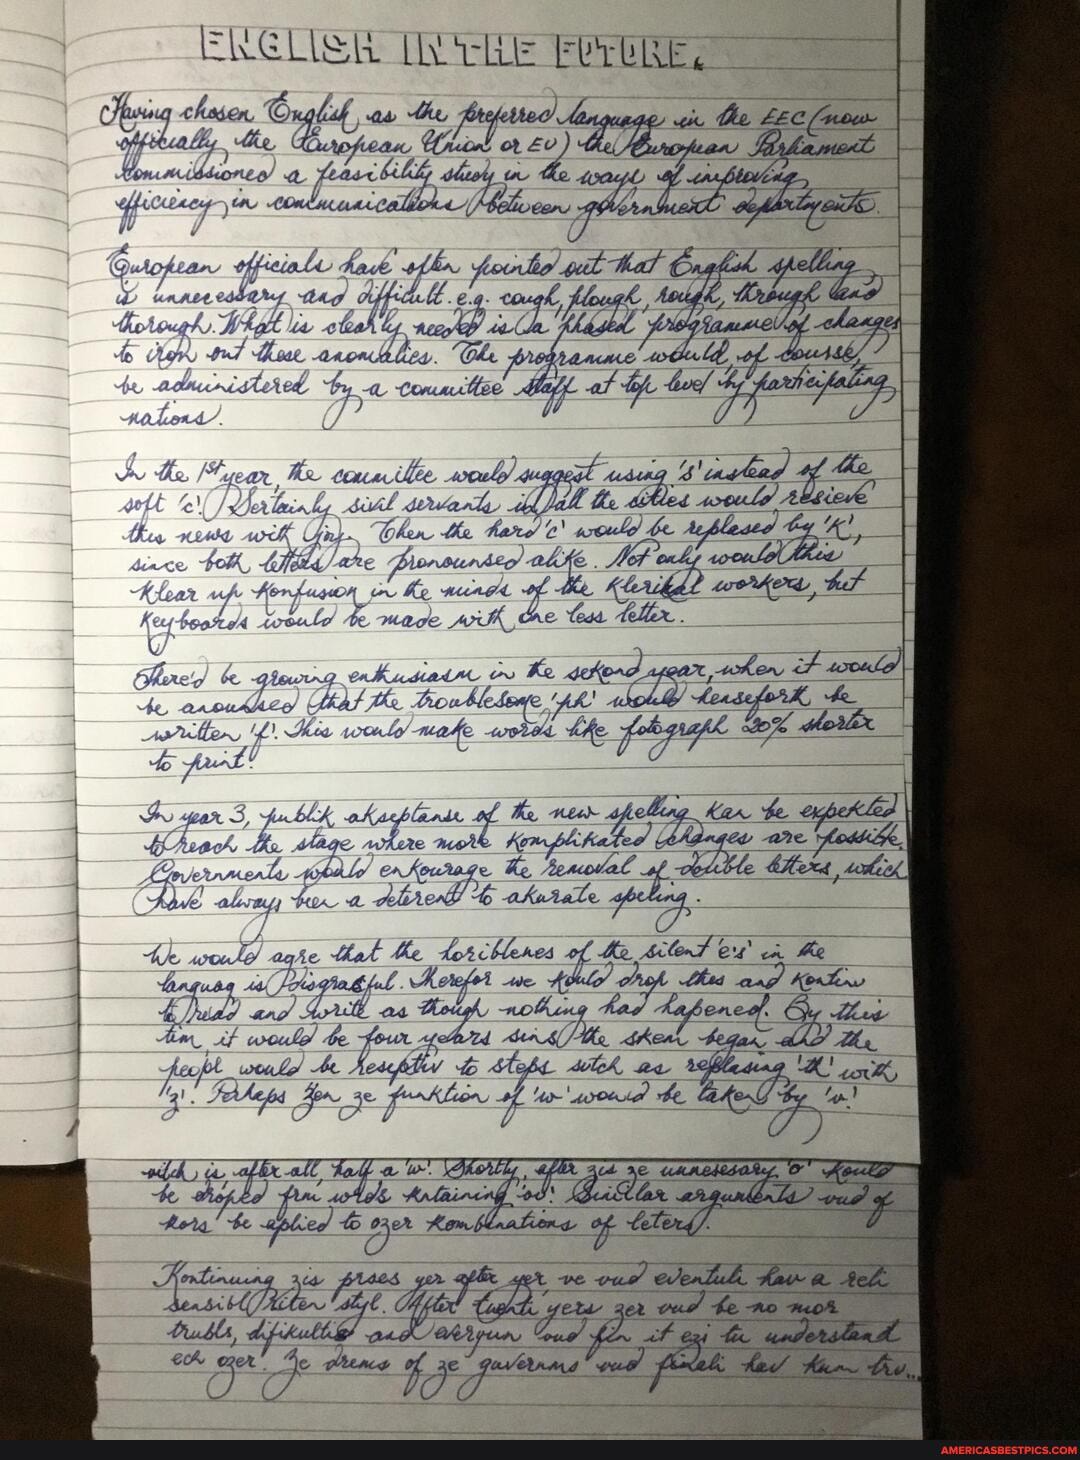 ENGLISH IN THE FUTURE.
Having chosen English as the preferred language in the EEC (now
officially the European Union or EU) the European Parliament
commissioned a feasibility study in the ways of improving
efficiency in communications between government departments.
European officials have often pointed out that English spelling
is unnecessary and difficult. e.g. cough, plough, rough, through and
thorough. What is clearly needed is a phased programme of changes
to iron out these anomalies. The programme would, of course,
be administered by a committee staff at top level by participating
nations.
In the 1st year, the committee would suggest using 's' instead of the
soft 'c'. Sertainly sivil servants in all the cities would resieve
this news with joy. Then the hard 'c' would be replased by 'K',
since both letters are pronounsed alike. Not only would this
Klear up Konfusion in the minds of the Klerikal workers, but
Keyboards would be made with one less letter.
There'd be growing enthusiasm in the sekond year, when it would
be anounsed that the troublesome 'ph' would henseforth be
written 'f'. This would make words like fotograph 20% shorter
to print.
In year 3, publik akseptanse of the new spelling Kan be expekted
to reach the stage where more Komplikated changes are possible.
Governments would enkourage the removal of double letters, which
have always been a deterent to akurate speling.
We would agre that the horiblenes of the silent 'e's' in the
languag is disgrasful. Therefor we Kould drop thes and Kontinu
to read and write as though nothing had hapened. By this
tim it would be four years sins the skem began and the
peopl would be reseptiv to steps sutch as replasing 'th' with
'z'. Perhaps zen ze funktion of 'w' would be taken by 'v'
vitch is, after all, half a 'w'. Shortly after zis ze unnesesary 'o' Kould
be droped frm words Kntaining 'ou'. Similar arguments vud of
Kors be aplied to ozer Kombinations of leters.
Kontinuing zis prses yer after yer, ve vud eventuli hav a reli
sensibl riten styl. After tventi yers zer vud be no mor
trubls, difikultis and evergun vud fin it ezi tu understand
ech ozer. Ze drems of ze guvernms vud finali hav Kum tru...
AMERICASBESTPICS.COM